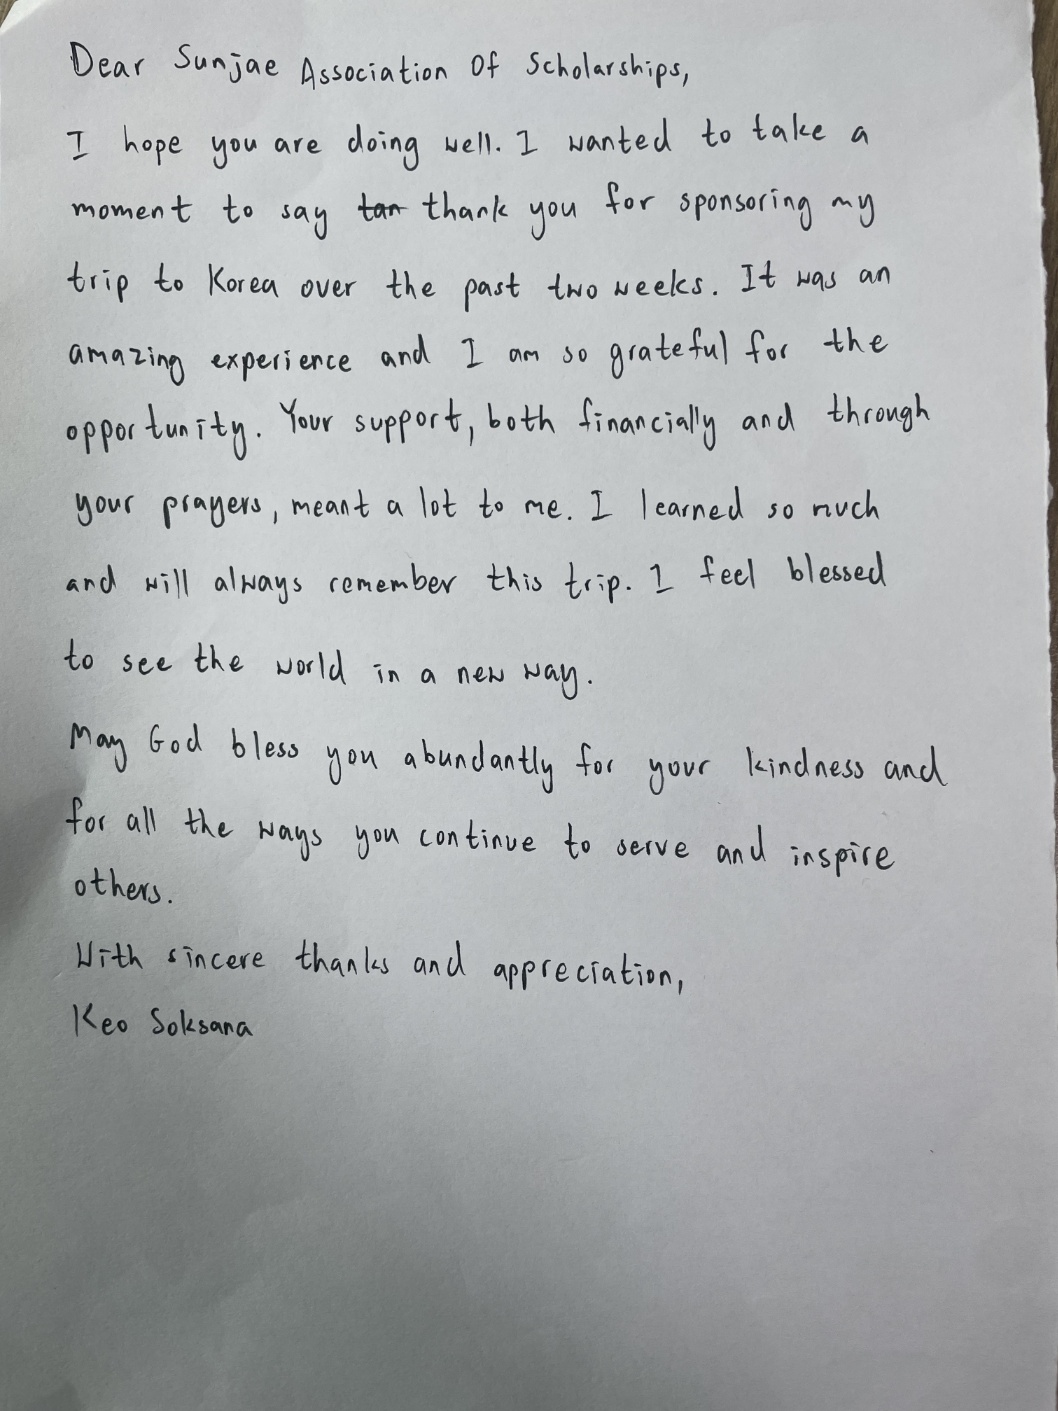 Dear Sunjae Association Of Scholarships,
I hope you are doing well. I wanted to take a
moment to say tan thank you for sponsoring my
trip to Korea over the past two weeks. It was an
amazing experience and I am so grateful for the
opportunity. Your support, both financially and through
your prayers, meant a lot to me. I learned so much
and will always remember this trip. I feel blessed
to see the world in a new way.
May God bless you abundantly for your kindness and
for all the ways you continue to serve and inspire
others.
With sincere thanks and appreciation,
Keo Soksana